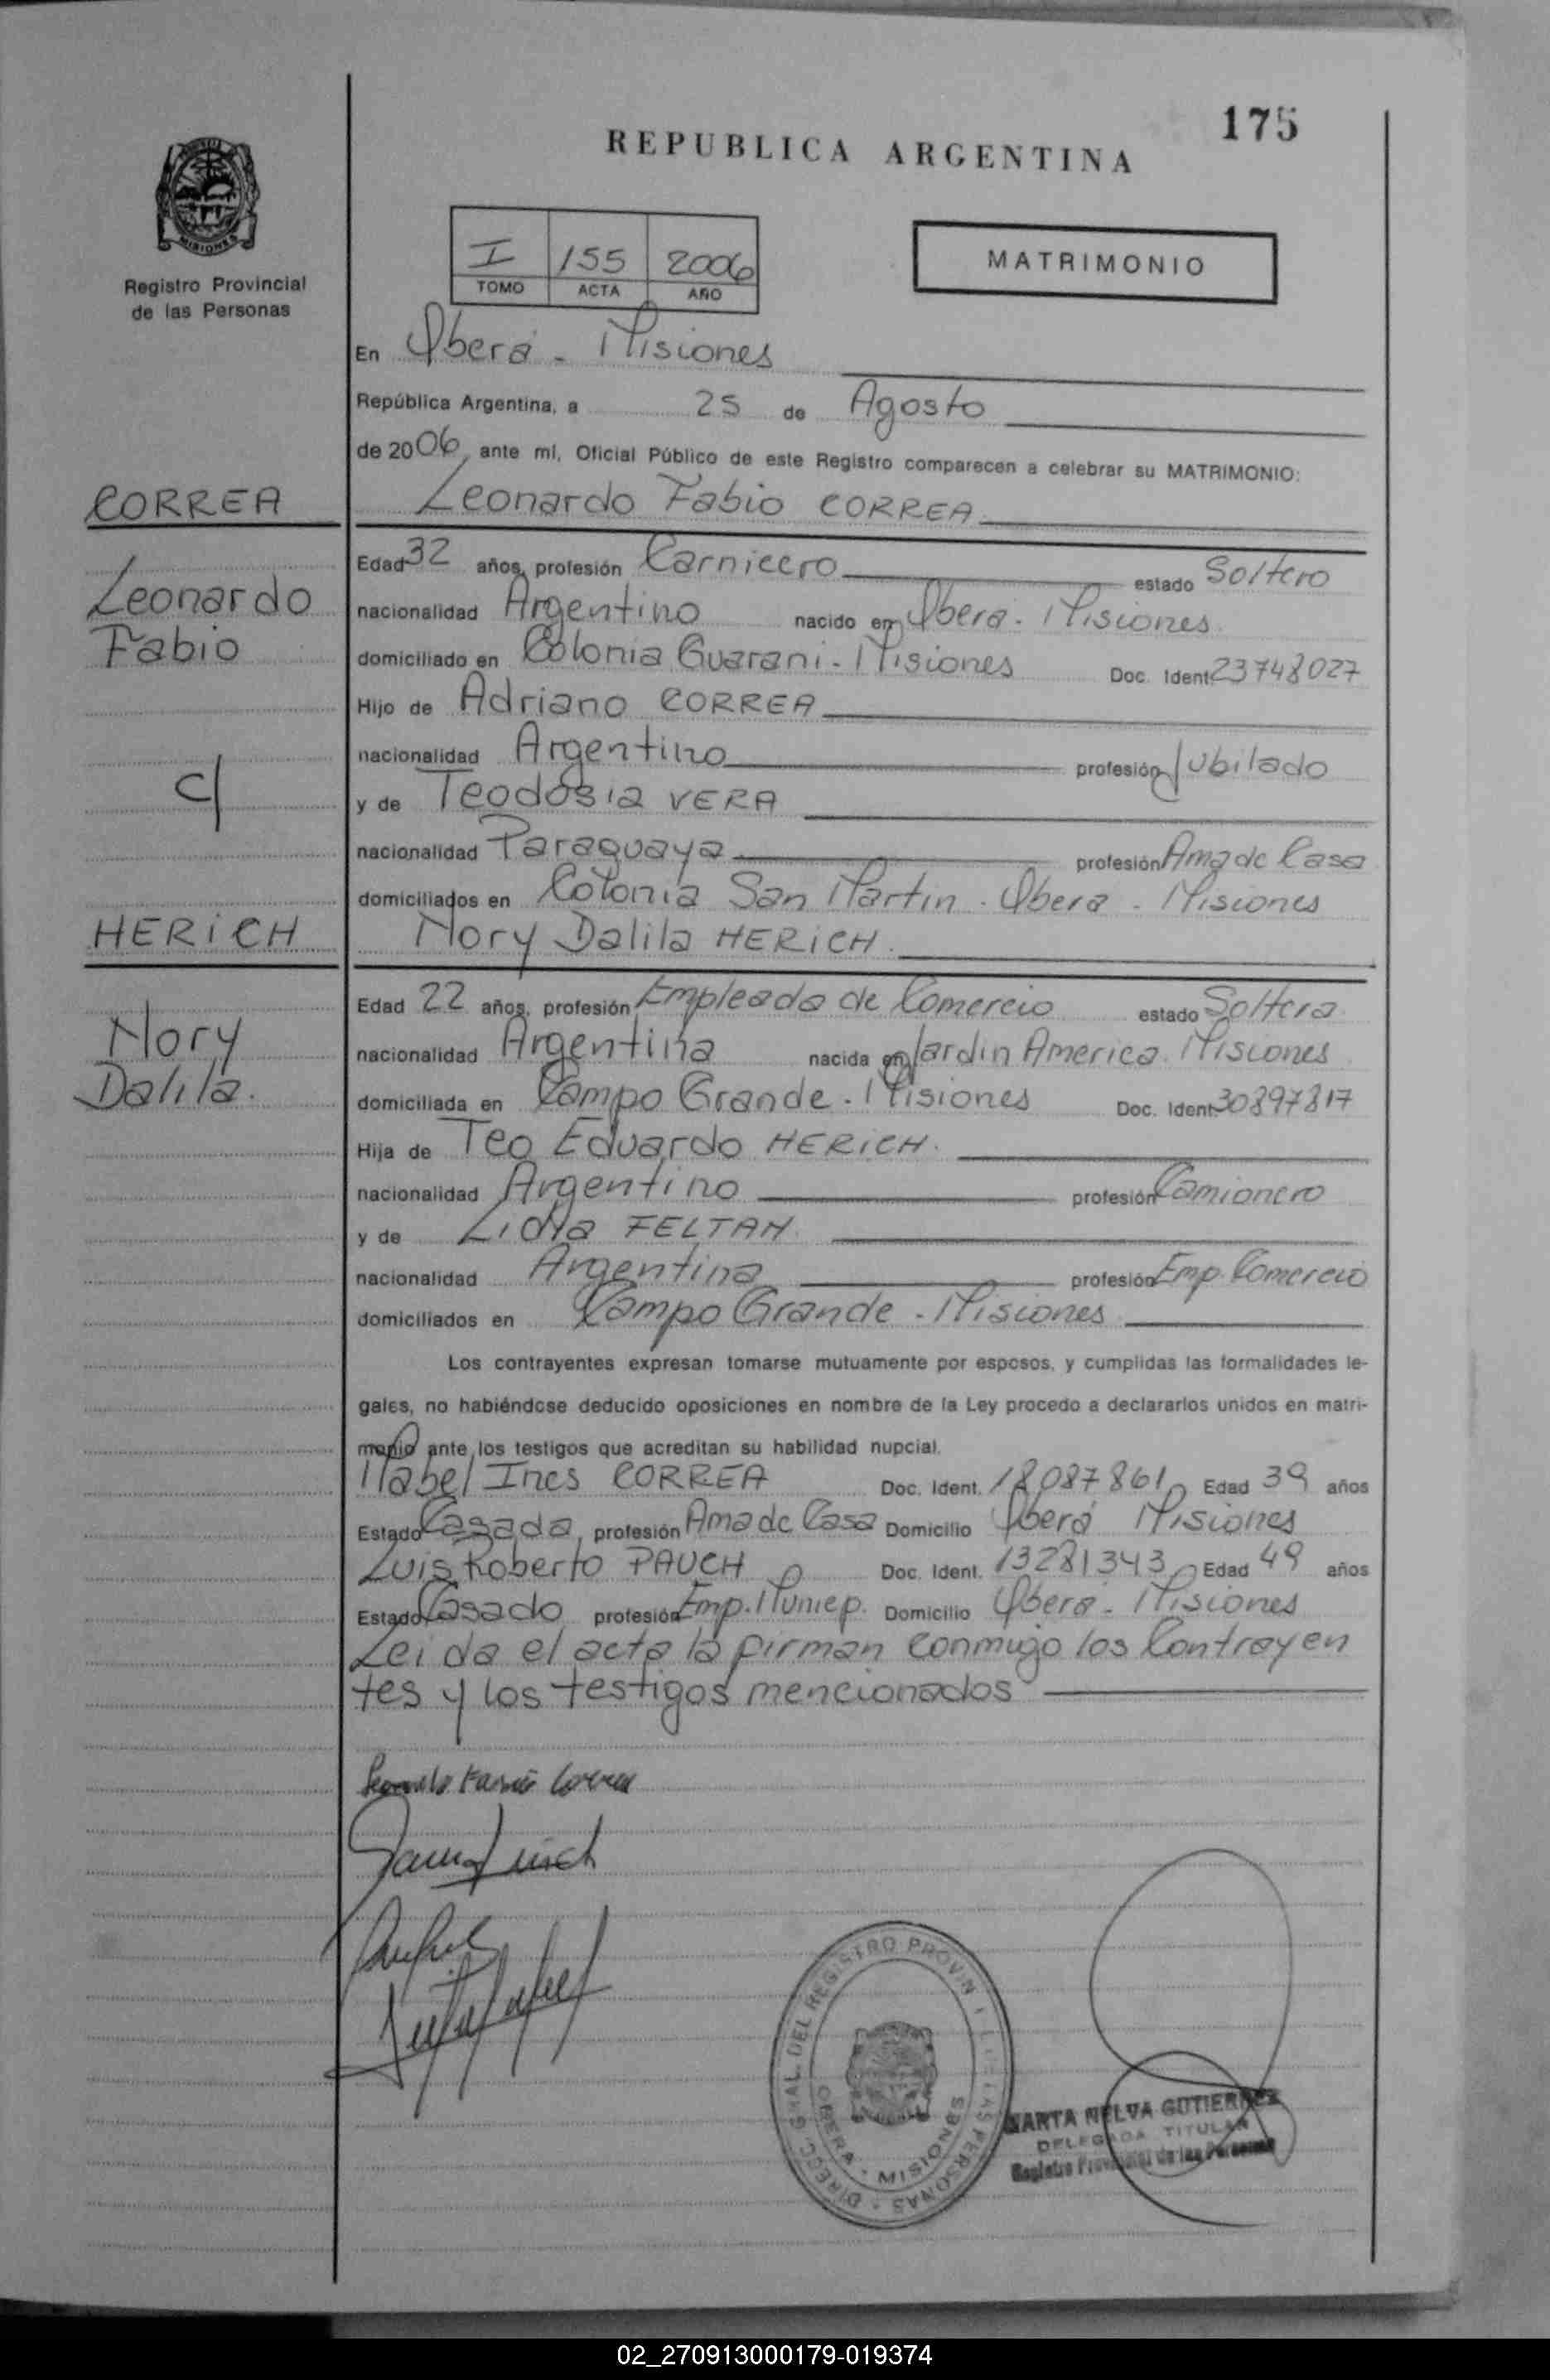 175
REPUBLICA ARGENTINA
MISIONES
Registro Provincial
de las Personas
I 155 2006
TOMO ACTA AÑO
MATRIMONIO
En Oberá - Misiones
República Argentina, a 25 de Agosto
de 2006, ante mí, Oficial Público de este Registro comparecen a celebrar su MATRIMONIO:
CORREA
Leonardo Fabio CORREA
Leonardo
Fabio
Edad 32 años, profesión Carnicero estado Soltero
nacionalidad Argentino nacido en Oberá - Misiones
domiciliado en Colonia Guarani - Misiones Doc. Ident. 23748027
Hijo de Adriano CORREA
nacionalidad Argentino profesión Jubilado
c/
y de Teodosia VERA
nacionalidad Paraguaya profesión Ama de Casa
domiciliados en Colonia San Martin - Oberá - Misiones
HERICH
Nory Dalila HERICH.
Nory
Dalila.
Edad 22 años, profesión Empleada de Comercio estado Soltera
nacionalidad Argentina nacida en Jardin America. Misiones
domiciliada en Campo Grande - Misiones Doc. Ident. 30897817
Hija de Teo Eduardo HERICH.
nacionalidad Argentino profesión Camionero
y de Lidia FELTAN.
nacionalidad Argentina profesión Emp. Comercio
domiciliados en Campo Grande - Misiones
Los contrayentes expresan tomarse mutuamente por esposos, y cumplidas las formalidades le-
gales, no habiéndose deducido oposiciones en nombre de la Ley procedo a declararlos unidos en matri-
monio ante los testigos que acreditan su habilidad nupcial.
Mabel Ines CORREA Doc. Ident. 18087861 Edad 39 años
Estado Casada profesión Ama de Casa Domicilio Oberá Misiones
Luis Roberto PAUCH Doc. Ident. 13281343 Edad 49 años
Estado Casado profesión Emp. Municp. Domicilio Oberá - Misiones
Leida el acta la firman conmigo los Contrayen
tes y los testigos mencionados
Leonardo Fabio Correa
DIRECC. GRAL. DEL REGISTRO PROVINCIAL DE LAS PERSONAS
OBERA - MISIONES
MARTA NELVA GUTIERREZ
DELEGADA TITULAR
Registro Provincial de las Personas
02_270913000179-019374